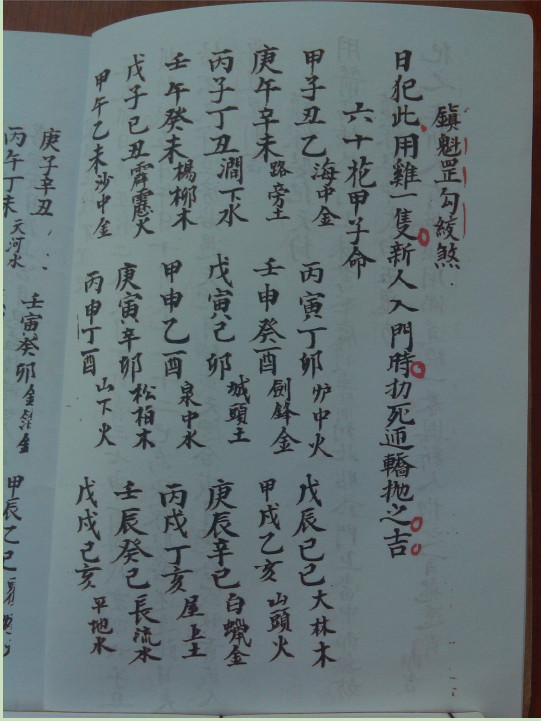 鎮魁罡勾絞煞
日犯此用雞一隻新人入門時扐死轎拋之吉
六十花甲子命
甲子丑乙海中金 丙寅丁卯炉中火 戊辰己巳大林木
庚午辛未路旁土 壬申癸酉劍鋒金 甲戌乙亥山頭火
丙子丁丑澗下水 戊寅己卯城頭土 庚辰辛巳白蠟金
壬午癸未楊柳木 甲申乙酉泉中水 丙戌丁亥屋上土
戊子己丑霹靂火 庚寅辛卯松柏木 壬辰癸巳長流水
甲午乙未沙中金 丙申丁酉山下火 戊戌己亥平地水
庚子辛丑 壬寅癸卯金箔金 甲辰乙巳
丙午丁未天河水